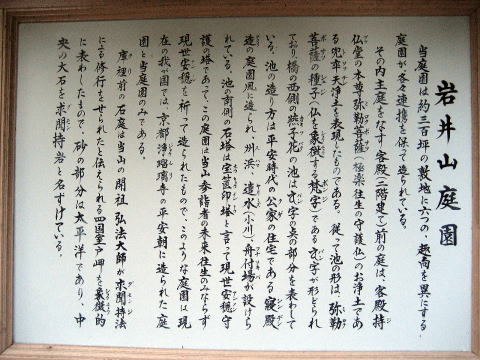 岩井山庭園
当庭園は約三百坪の敷地に六つの、趣高を異にする
庭園が各々連携を保て造られている。
その内主庭をなす客殿(二階建て)前の庭は、客殿持
仏堂の本尊弥勒菩薩(極楽往生の守護仏)のお浄土であ
る兜率天浄土を表現したものである。従って池の形は、弥勒
菩薩の種子(仏を象徴する梵字)である 字が形どられ
ており橋の西側の燕子花の池は 字の 点の部分を表わして
いる。池の造り方は平安時代の公家の住宅である寝殿
造の庭園風に造られ、州浜、遣水(小川)舟付場が設けら
れている。池の南側の石塔は宝篋印塔と言って現世安穏守
護の塔であって、この庭園は当山参詣者の未来往生のみならず
現世安穏を祈って造られたもので、このような庭園は現
在の我が国では、京都浄瑠璃寺の平安朝に造られた庭
園と当庭園のみである。
庫裡前の石庭は当山の開祖弘法大師が求聞持法
による修行をせられたと伝えられる四国室戸岬を象徴的
に表わしたもので、砂の部分は太平洋であり、中
央の大石を求聞持岩と名ずけている。